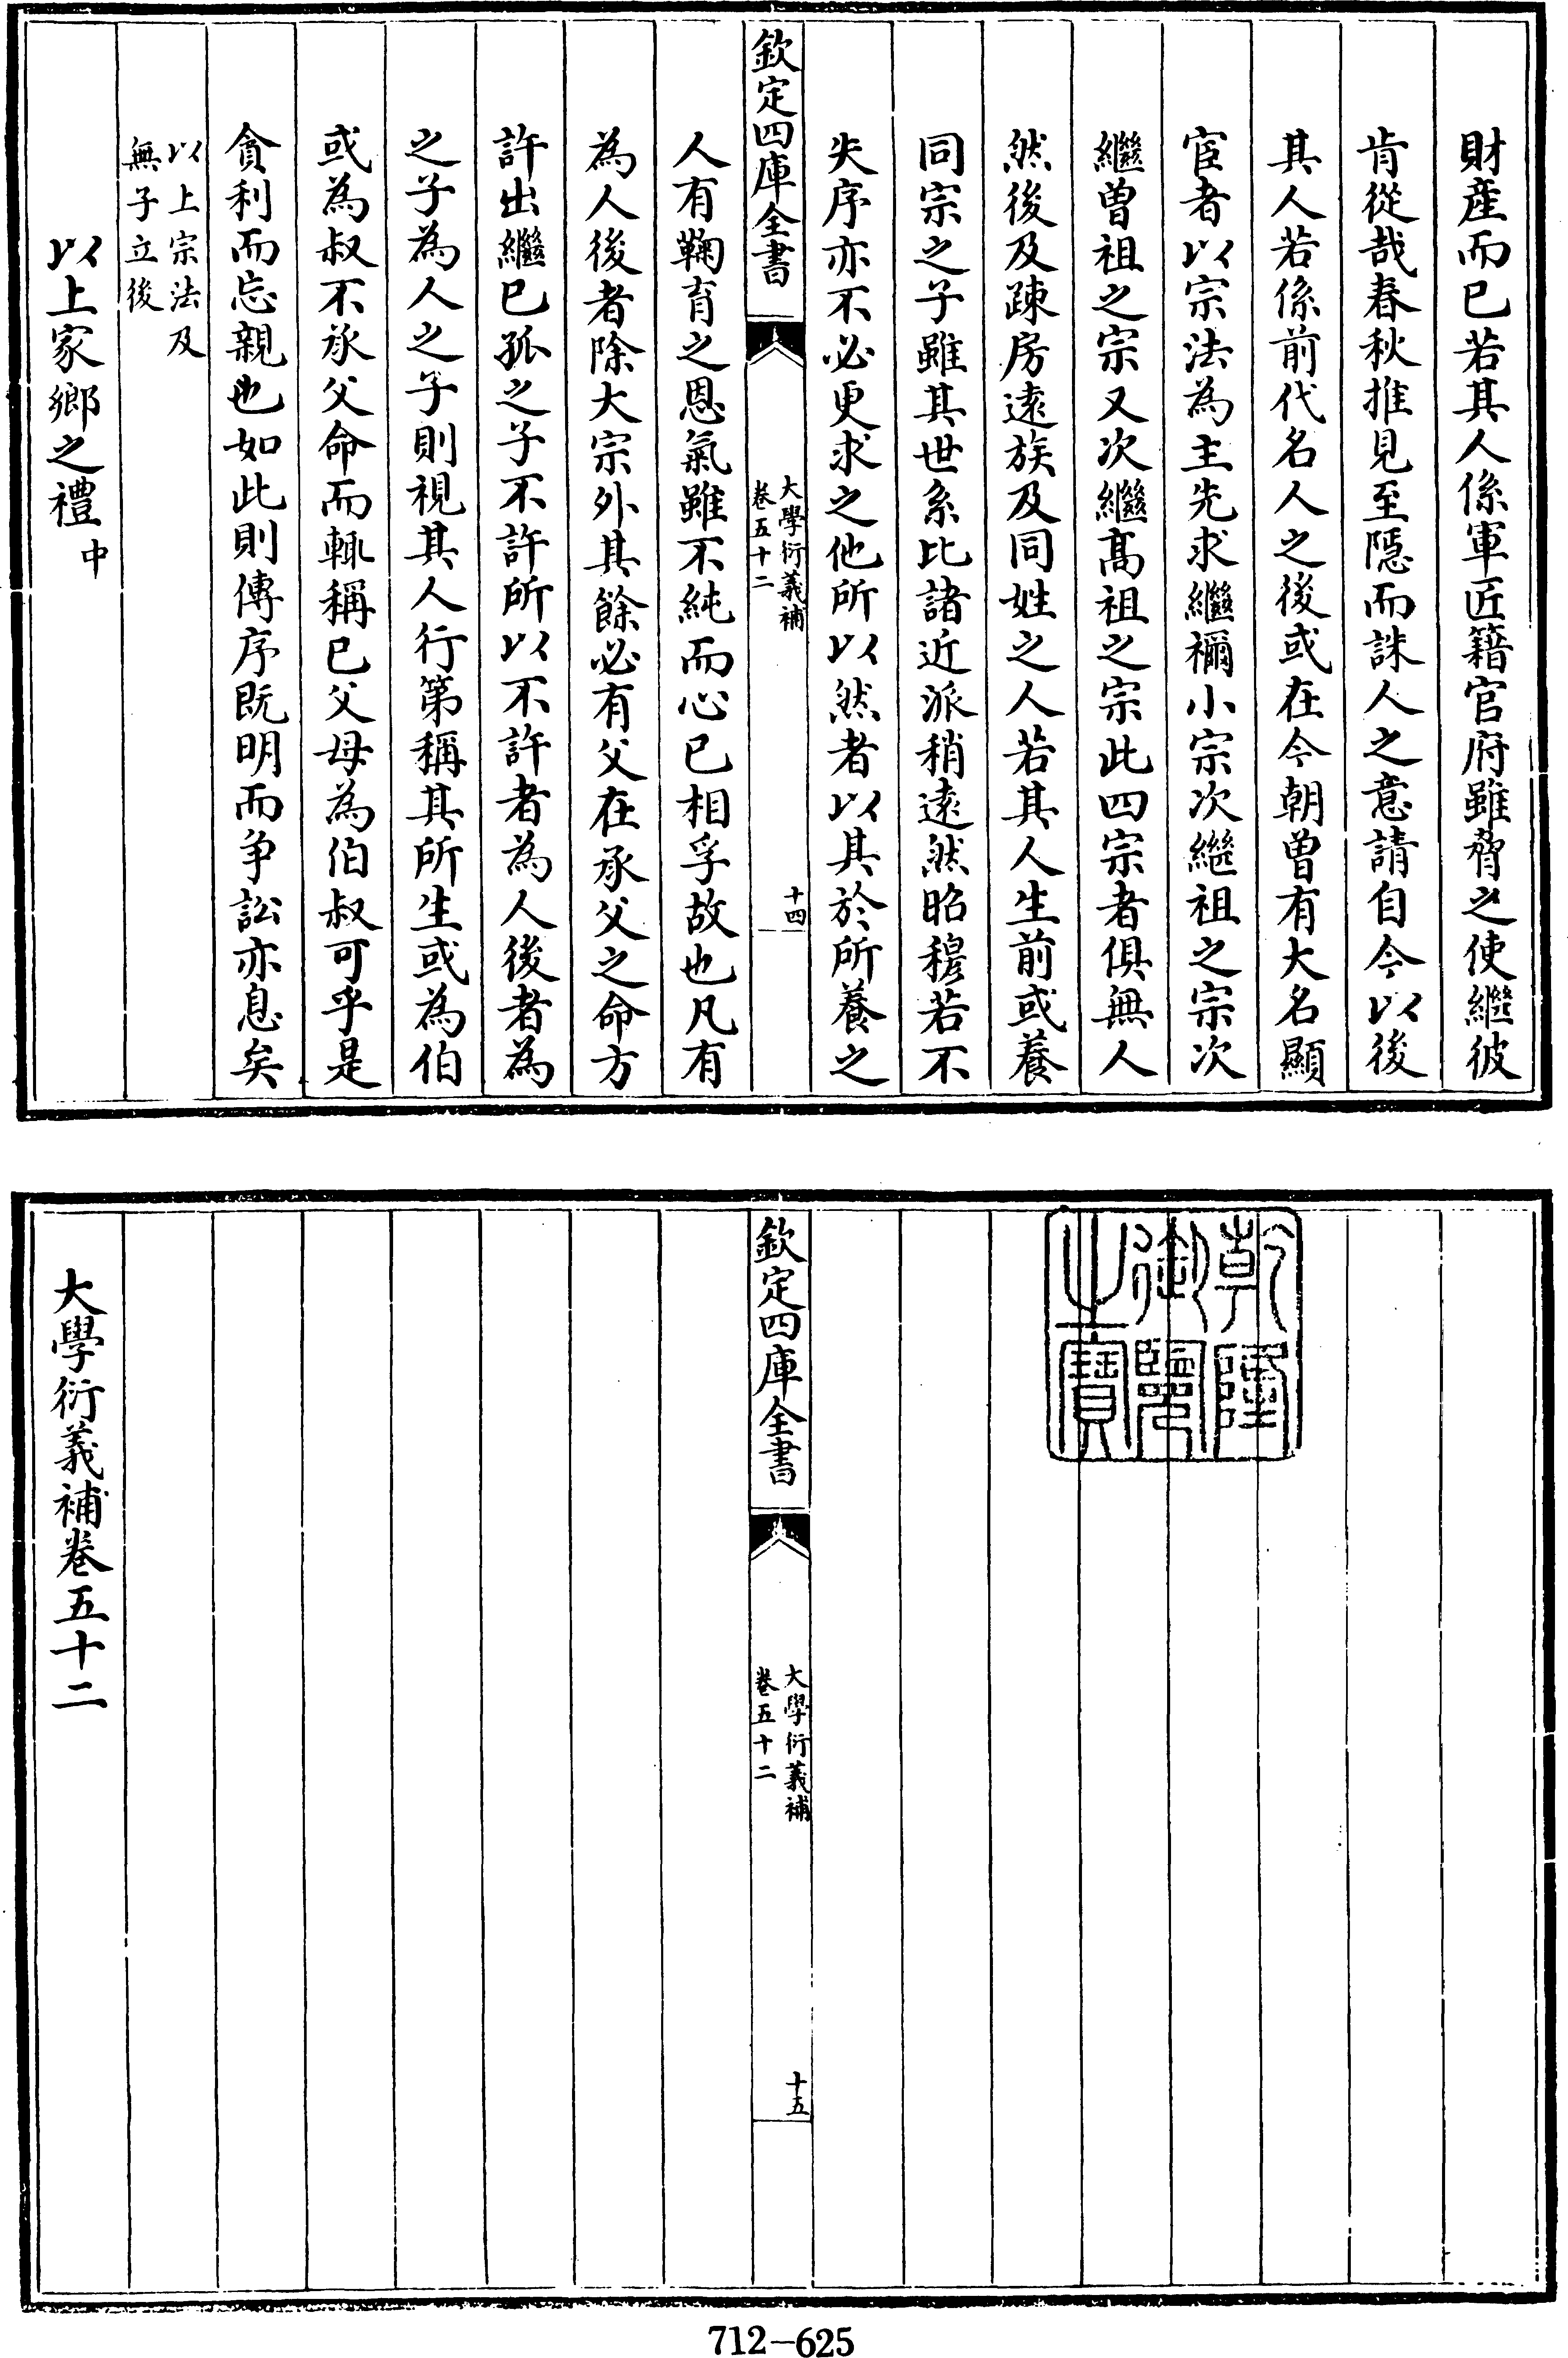 財產而已若其人係軍匠籍官府雖脅之使繼彼
肯從哉春秋推見至隱而誅人之意請自今以後
其人若係前代名人之後或在今朝曽有大名顯
宦者以宗法為主先求繼禰小宗次繼祖之宗次
繼曽祖之宗又次繼髙祖之宗此四宗者俱無人
然後及疎房逺族及同姓之人若其人生前或養
同宗之子雖其世系比諸近派稍逺然昭穆若不
失序亦不必更求之他所以然者以其於所養之
欽定四庫全書
大學衍義補
卷五十二
十四
人有鞠育之恩氣雖不純而心已相孚故也凡有
為人後者除大宗外其餘必有父在承父之命方
許出繼已孤之子不許所以不許者為人後者為
之子為人之子則視其人行第稱其所生或為伯
或為叔不承父命而輒稱已父母為伯叔可乎是
貪利而忘親也如此則傳序既明而爭訟亦息矣
以上宗法及
無子立後
以上家鄉之禮中
乾隆
御覽
之寶
欽定四庫全書
大學衍義補
卷五十二
十五
大學衍義補卷五十二
712-625